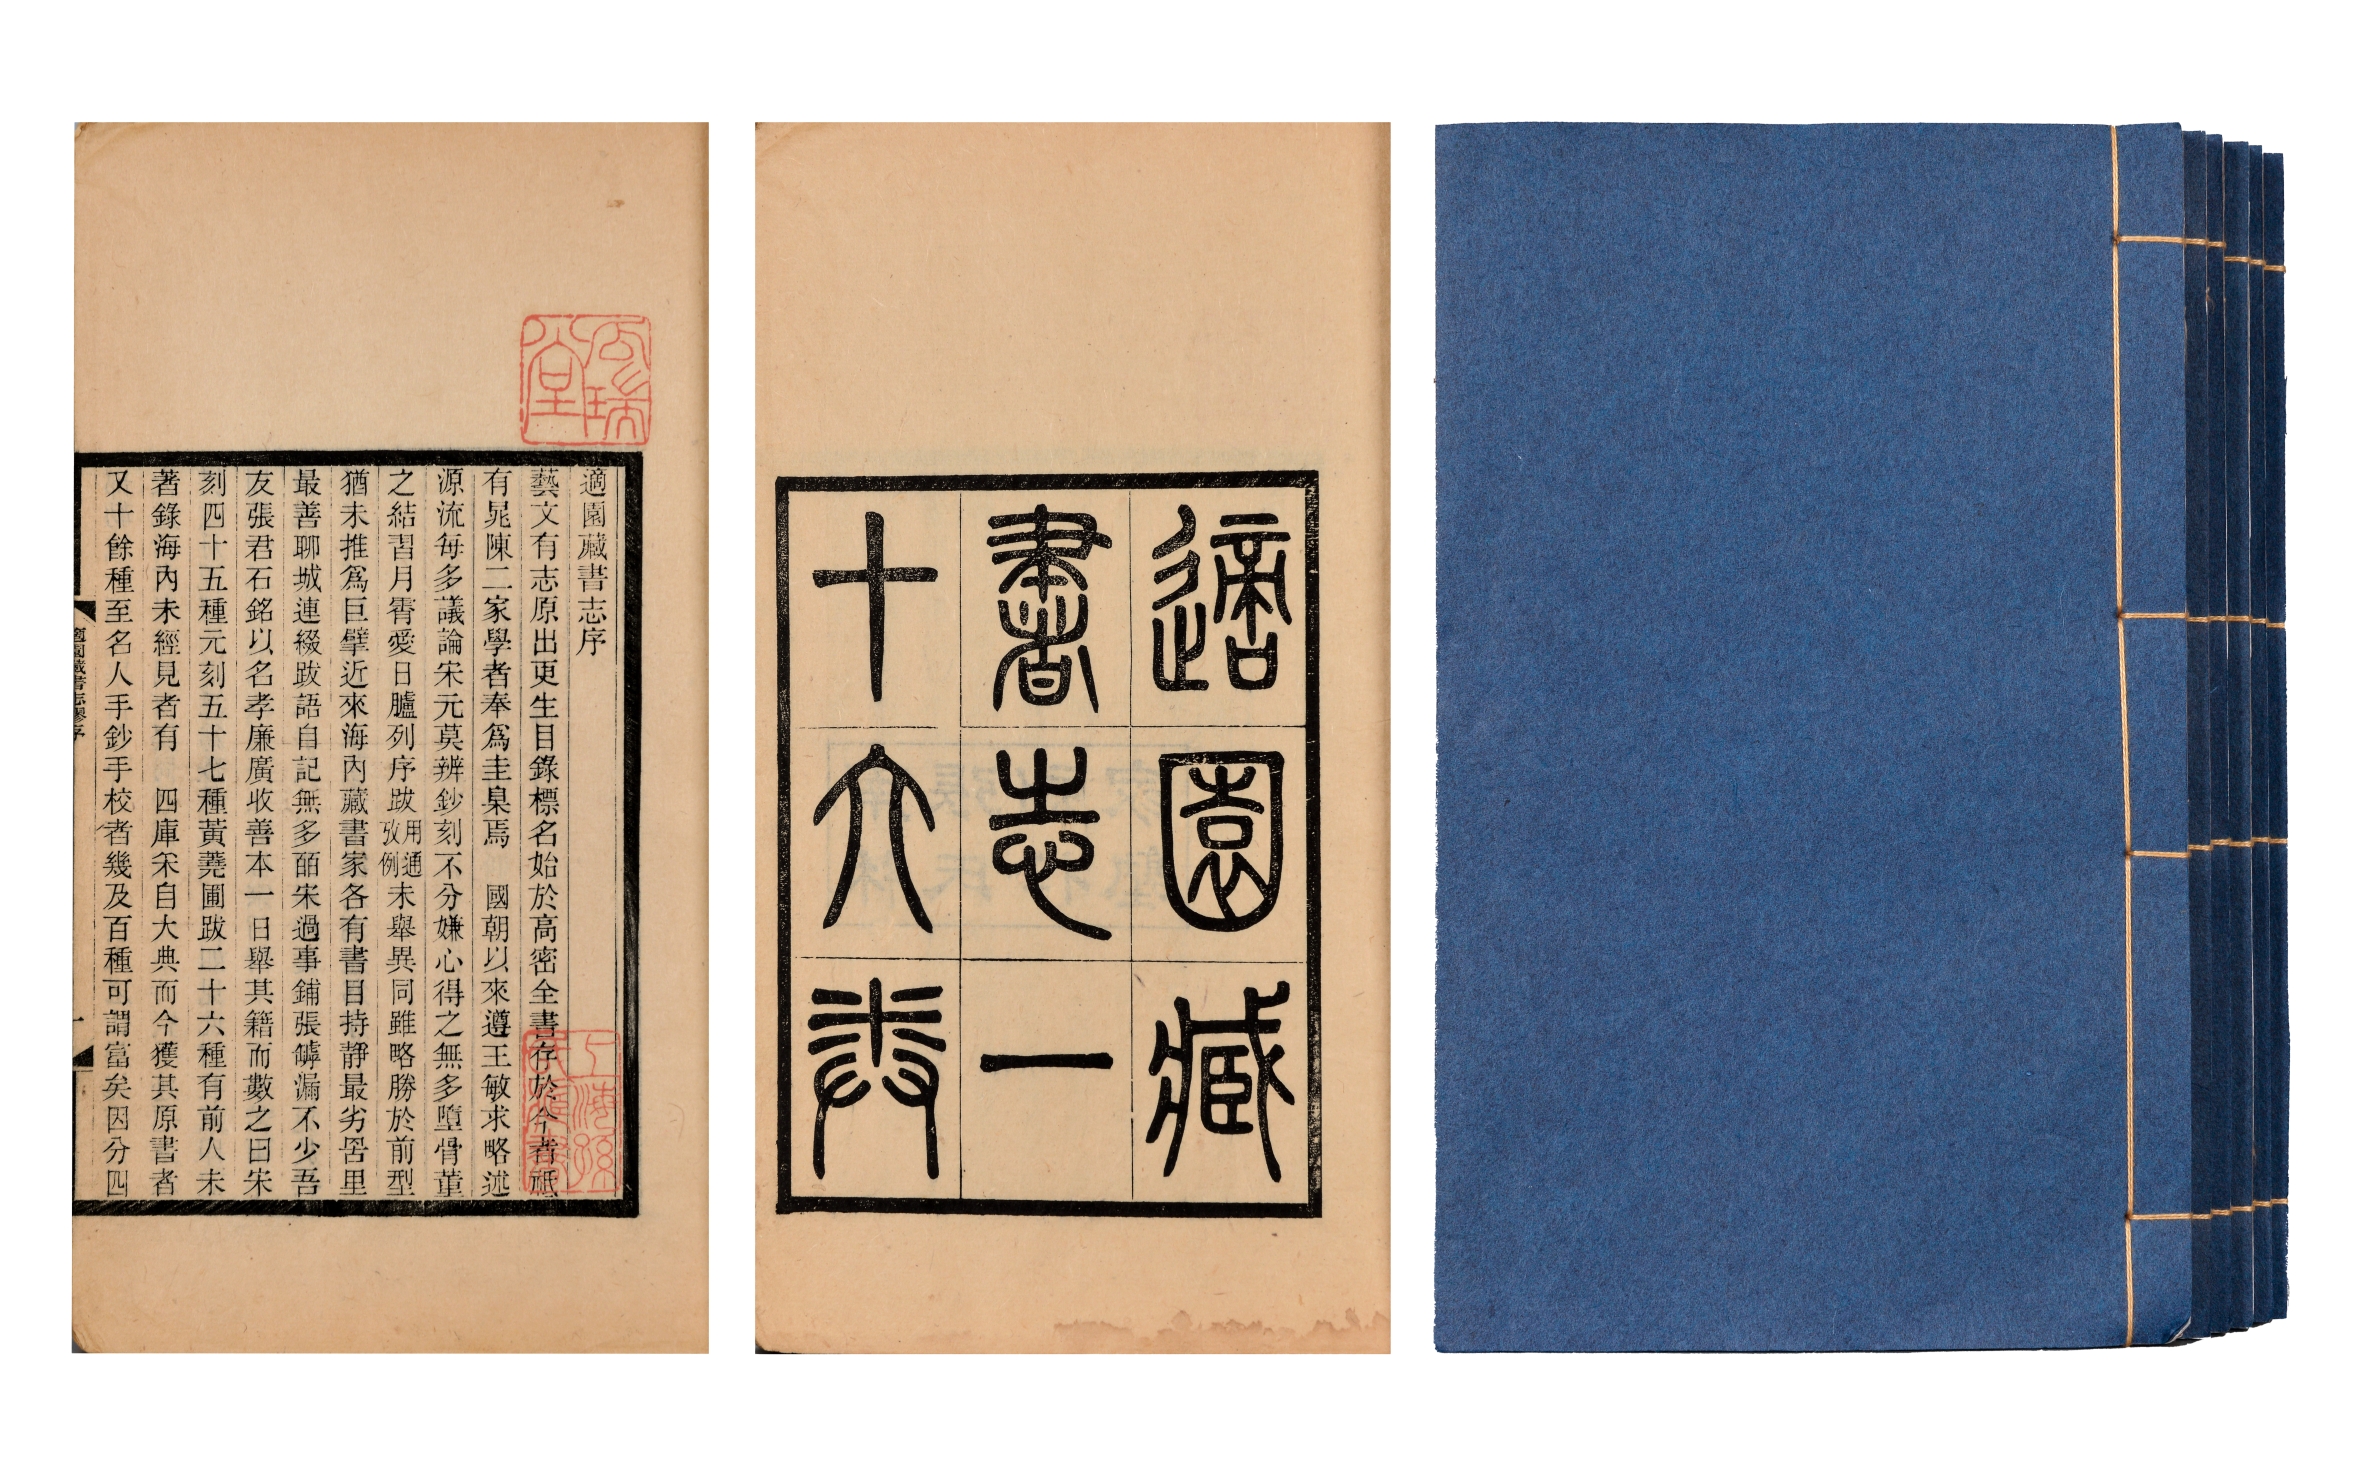 適園藏
書志一
十六卷
適園藏書志序
藝文有志原出更生目錄標名始於高密全書存於今者祗
有晁陳二家學者奉爲圭臬焉　國朝以來遵王敏求略述
源流每多議論宋元莫辨鈔刻不分嫌心得之無多墮骨董
之結習月霄愛日臚列序跋用通攷例未舉異同雖略勝於前型
猶未推爲巨擘近來海內藏書家各有書目持靜最劣罟里
最善聊城連綴跋語自記無多皕宋過事鋪張罅漏不少吾
友張君石銘以名孝廉廣收善本一日舉其籍而數之曰宋
刻四十五種元刻五十七種黃蕘圃跋二十六種有前人未
著錄海內未經見者有　四庫采自大典而今獲其原書者
又十餘種至名人手鈔手校者幾及百種可謂富矣因分四
適園藏書志繆序